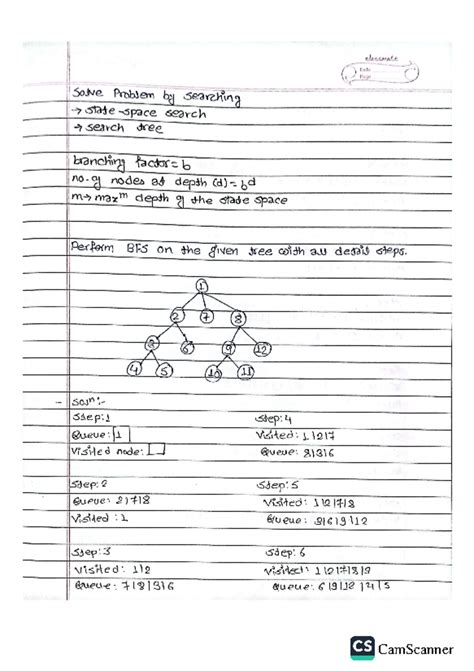 classmate
Date
Page
Solve Problem by searching
→ state-space search
→ search tree
branching factor = b
no. of nodes at depth (d) = b^d
m → max^m depth of the state space
Perform BFS on the given tree with all detail steps.
1
2 7 8
3 6 9 12
4 5 10 11
- Soln :-
Step:1
Queue: 1
Visited node:
Step: 2
Queue: 2|7|8
Visited : 1
Step: 3
Visited : 1|2
Queue : 7|8|3|6
Step: 4
Visited : 1|2|7
Queue : 8|3|6
Step: 5
Visited : 1|2|7|8
Queue : 3|6|9|12
Step: 6
Visited : 1|2|7|8|3
Queue : 6|9|12|4|5
CS CamScanner